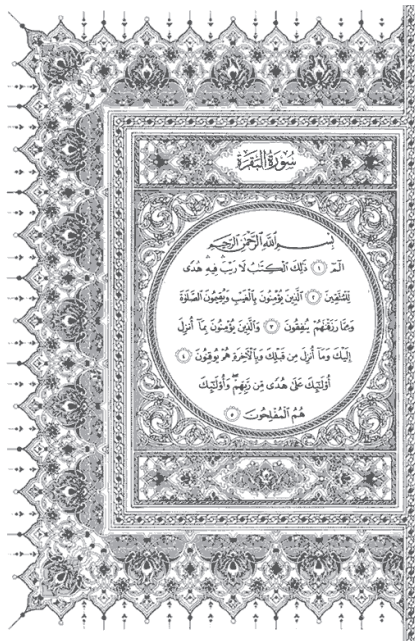 سُورَةُ الْبَقَرَةِ
بِسْمِ اللَّهِ الرَّحْمَٰنِ الرَّحِيمِ
الٓمٓ ١ ذَٰلِكَ الْكِتَٰبُ لَا رَيْبَ ۛ فِيهِ ۛ هُدًى
لِّلْمُتَّقِينَ ٢ الَّذِينَ يُؤْمِنُونَ بِالْغَيْبِ وَيُقِيمُونَ الصَّلَوٰةَ
وَمِمَّا رَزَقْنَٰهُمْ يُنفِقُونَ ٣ وَالَّذِينَ يُؤْمِنُونَ بِمَآ أُنزِلَ
إِلَيْكَ وَمَآ أُنزِلَ مِن قَبْلِكَ وَبِالْأَخِرَةِ هُمْ يُوقِنُونَ ٤
أُو۟لَٰٓئِكَ عَلَىٰ هُدًى مِّن رَّبِّهِمْ ۖ وَأُو۟لَٰٓئِكَ
هُمُ الْمُفْلِحُونَ ٥